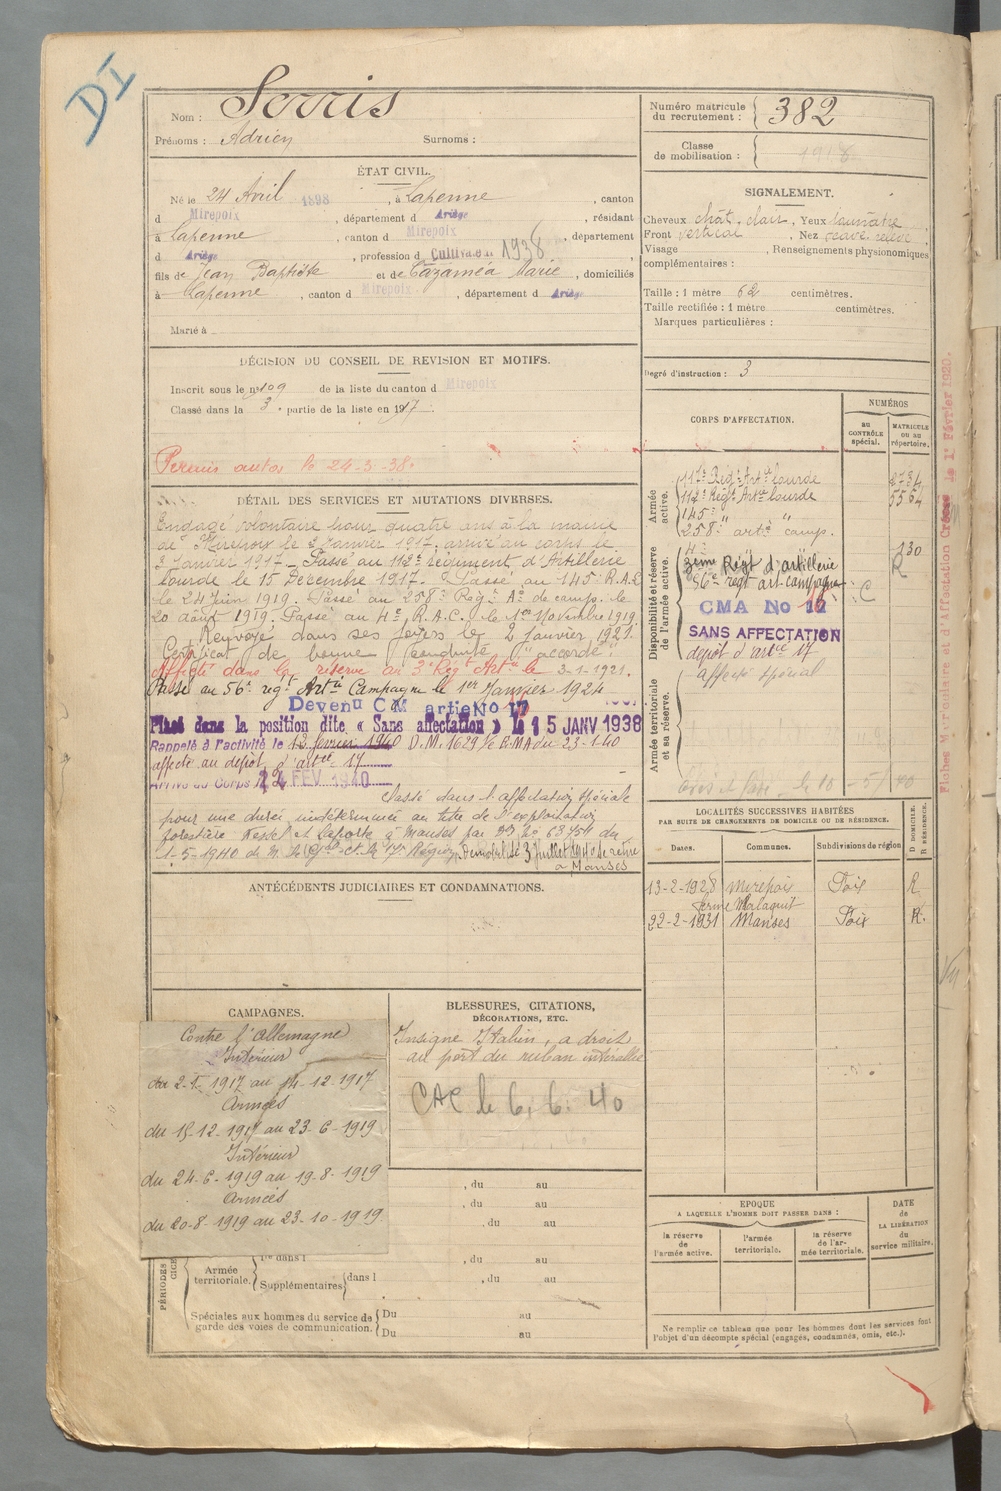 DI
Nom : Serris
Prénoms : Adrien Surnoms :
ÉTAT CIVIL.
Né le 24 Avril 1898, à Lapenne, canton
d Mirepoix, département d Ariège, résidant
à Lapenne, canton d Mirepoix, département
d Ariège, profession d Cultivateur 1938
fils de Jean Baptiste et de Cazaméa Marie, domiciliés
à Lapenne, canton d Mirepoix, département d Ariège
Marié à
DÉCISION DU CONSEIL DE REVISION ET MOTIFS.
Inscrit sous le n° 109 de la liste du canton d Mirepoix
Classé dans la 3e partie de la liste en 1917.
Permis autos le 24-3-38.
DÉTAIL DES SERVICES ET MUTATIONS DIVERSES.
Engagé volontaire pour quatre ans à la mairie
de Mirepoix le 2 Janvier 1917, arrivé au corps le
3 Janvier 1917 - Passé au 112e régiment d'Artillerie
lourde le 15 Décembre 1917. Passé au 145e R.A.L
le 24 Juin 1919. Passé au 258e Régt Aie de camp. le
20 août 1919. Passé au 4e R.A.C. le 1er Novembre 1919.
Renvoyé dans ses foyers le 2 janvier 1921.
Certificat de bonne conduite "accordé".
Affecté dans la réserve au 3e Régt Artie le 3-1-1921.
Passé au 56e régt Artie Campagne le 1er Janvier 1924
Devenu C M artie No 17
Placé dans la position dite « Sans affectation » le 15 JANV 1938
Rappelé à l'activité le 12 février 1940 D.M. 1629
affecté au dépôt d'artie 17
Arrivé au Corps 24 FEV 1940
Classé dans l'affectation spéciale
pour une durée indéterminée au titre de l'exploitation
forestière Tessel et Laporte à Manses par
1-5-1940 Démobilisé 3 Juillet 1940 se retire
à Manses
ANTÉCÉDENTS JUDICIAIRES ET CONDAMNATIONS.
CAMPAGNES.
Contre l'Allemagne
Intérieur
du 2-1-1917 au 14-12-1917
Armées
du 15-12-1917 au 23-6-1919
Intérieur
du 24-6-1919 au 19-8-1919
Armées
du 20-8-1919 au 23-10-1919
BLESSURES, CITATIONS,
DÉCORATIONS, ETC.
Insigne Italien, a droit
au port du ruban interallié
CAC le 6. 6. 40
, du au
, du au
, du au
PÉRIODES
Armée territoriale. dans l , du au
Supplémentaires dans l , du au
Spéciales aux hommes du service de garde des voies de communication. Du au
Du au
Numéro matricule du recrutement : 382
Classe de mobilisation : 1918
SIGNALEMENT.
Cheveux chât. clair, Yeux
Front vertical, Nez cave relevé
Visage , Renseignements physionomiques
complémentaires :
Taille : 1 mètre 62 centimètres.
Taille rectifiée : 1 mètre centimètres.
Marques particulières :
Degré d'instruction : 3
CORPS D'AFFECTATION.
NUMÉROS
au CONTRÔLE spécial.
MATRICULE OU AU répertoire.
Armée active.
117e Régt Artie lourde
112e Régt Artie lourde 5564
145e " "
258e artie camp.
Disponibilité et réserve de l'armée active.
4e 130
3ème Régt d'artillerie R
56e régt art. campagne C
CMA No 17
SANS AFFECTATION
dépôt d'artie 17
Armée territoriale et sa réserve.
affecté spécial
Fiches Matriculaire et d'Affectation Créées le 1er Février 1920.
LOCALITÉS SUCCESSIVES HABITÉES
PAR SUITE DE CHANGEMENTS DE DOMICILE OU DE RÉSIDENCE.
D DOMICILE.
R RÉSIDENCE.
Dates. Communes. Subdivisions de région
13-2-1928 Mirepoix Foix R
ferme Malaquit
22-2-1931 Manses Foix R.
EPOQUE
A LAQUELLE L'HOMME DOIT PASSER DANS :
la réserve de l'armée active.
l'armée territoriale.
la réserve de l'armée territoriale.
DATE de LA LIBÉRATION du service militaire.
Ne remplir ce tableau que pour les hommes dont les services font
l'objet d'un décompte spécial (engagés, condamnés, omis, etc.).